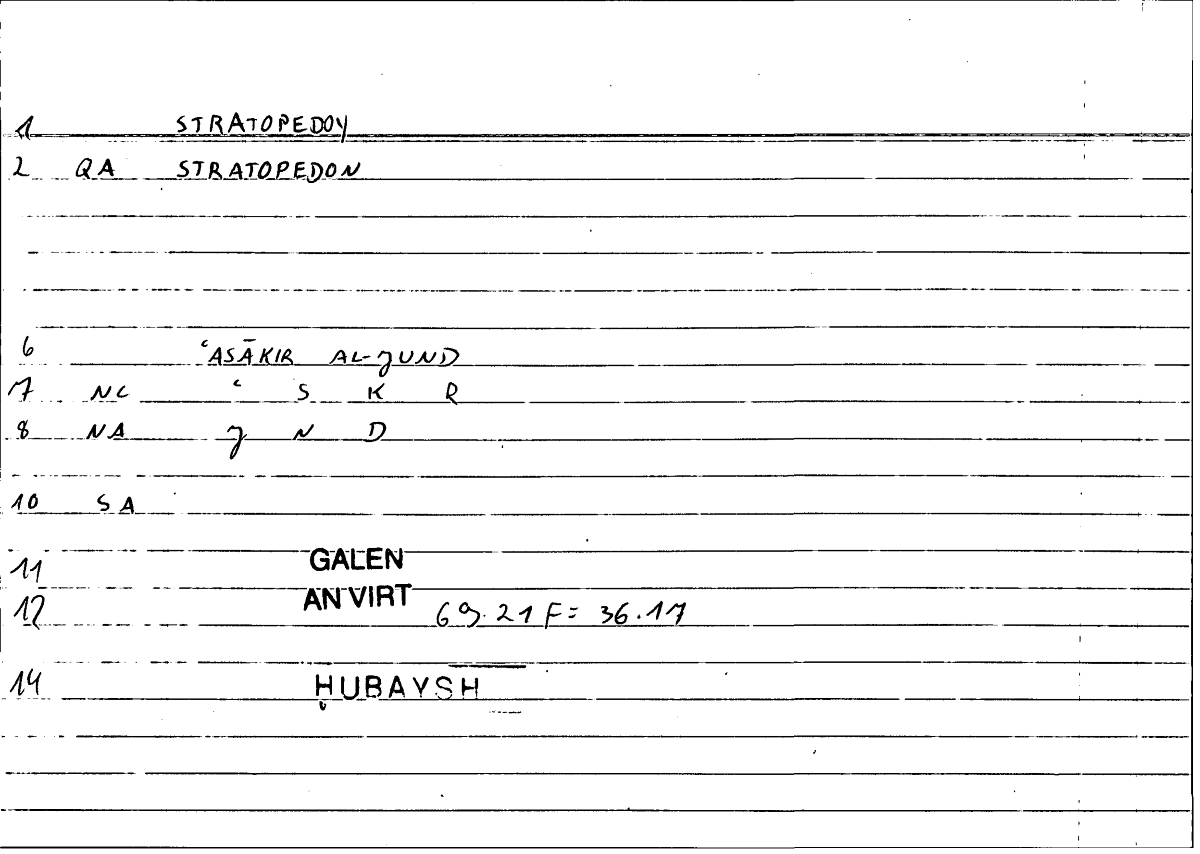 1 STRATOPEDOY
2 QA STRATOPEDON
6 ʿASĀKIR AL-JUND
7 NC ʿ S K R
8 NA J N D
10 SA
11 GALEN
12 AN VIRT 69.21 F= 36.17
14 ḤUBAYSH